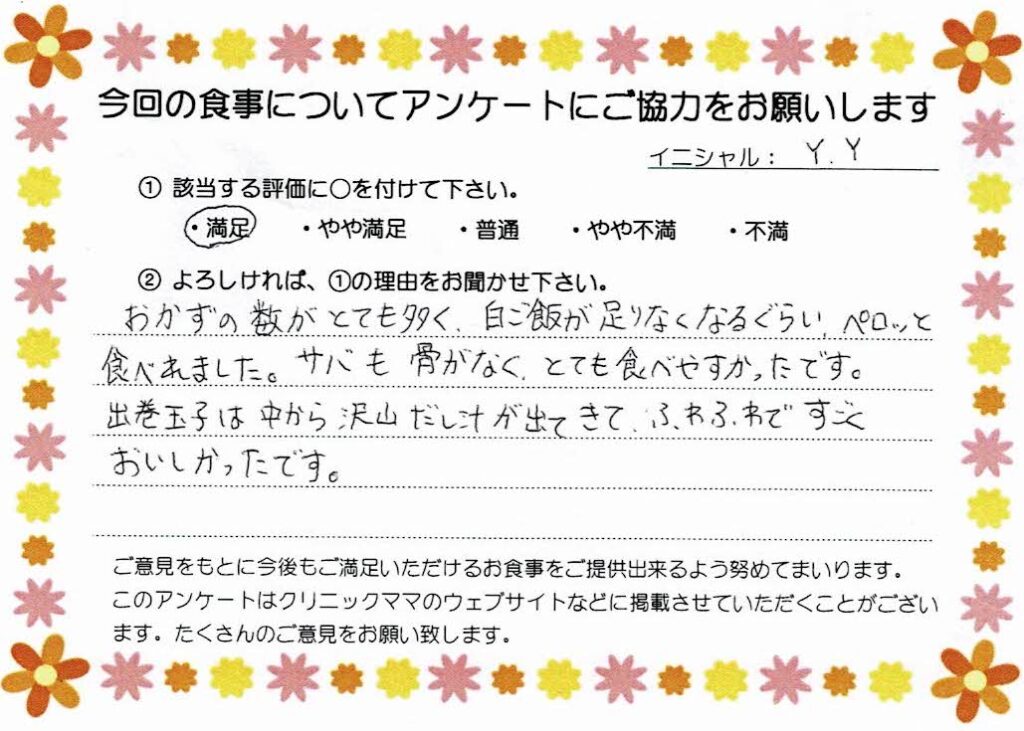 今回の食事についてアンケートにご協力をお願いします
イニシャル： Y.Y
① 該当する評価に○を付けて下さい。
・満足 ・やや満足 ・普通 ・やや不満 ・不満
② よろしければ、①の理由をお聞かせ下さい。
おかずの数がとても多く、白ご飯が足りなくなるぐらい、ペロッと
食べれました。サバも骨がなく、とても食べやすかったです。
出巻玉子は中から沢山だし汁が出てきて、ふわふわですごく
おいしかったです。
ご意見をもとに今後もご満足いただけるお食事をご提供出来るよう努めてまいります。
このアンケートはクリニックママのウェブサイトなどに掲載させていただくことがござい
ます。たくさんのご意見をお願い致します。